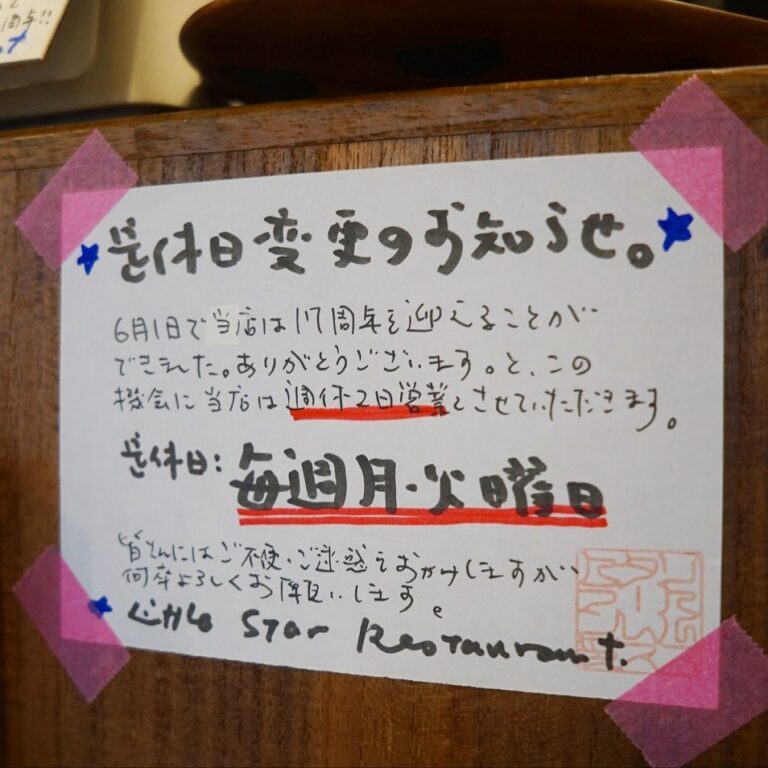 周年!!
定休日変更のお知らせ。
6月1日で当店は17周年を迎えることが
できました。ありがとうございます。と、この
機会に当店は週休2日営業とさせていただきます。
定休日:毎週月・火曜日
皆さんにはご不便・ご迷惑をおかけしますが、
何卒よろしくお願いします。
Little Star Restaurant.